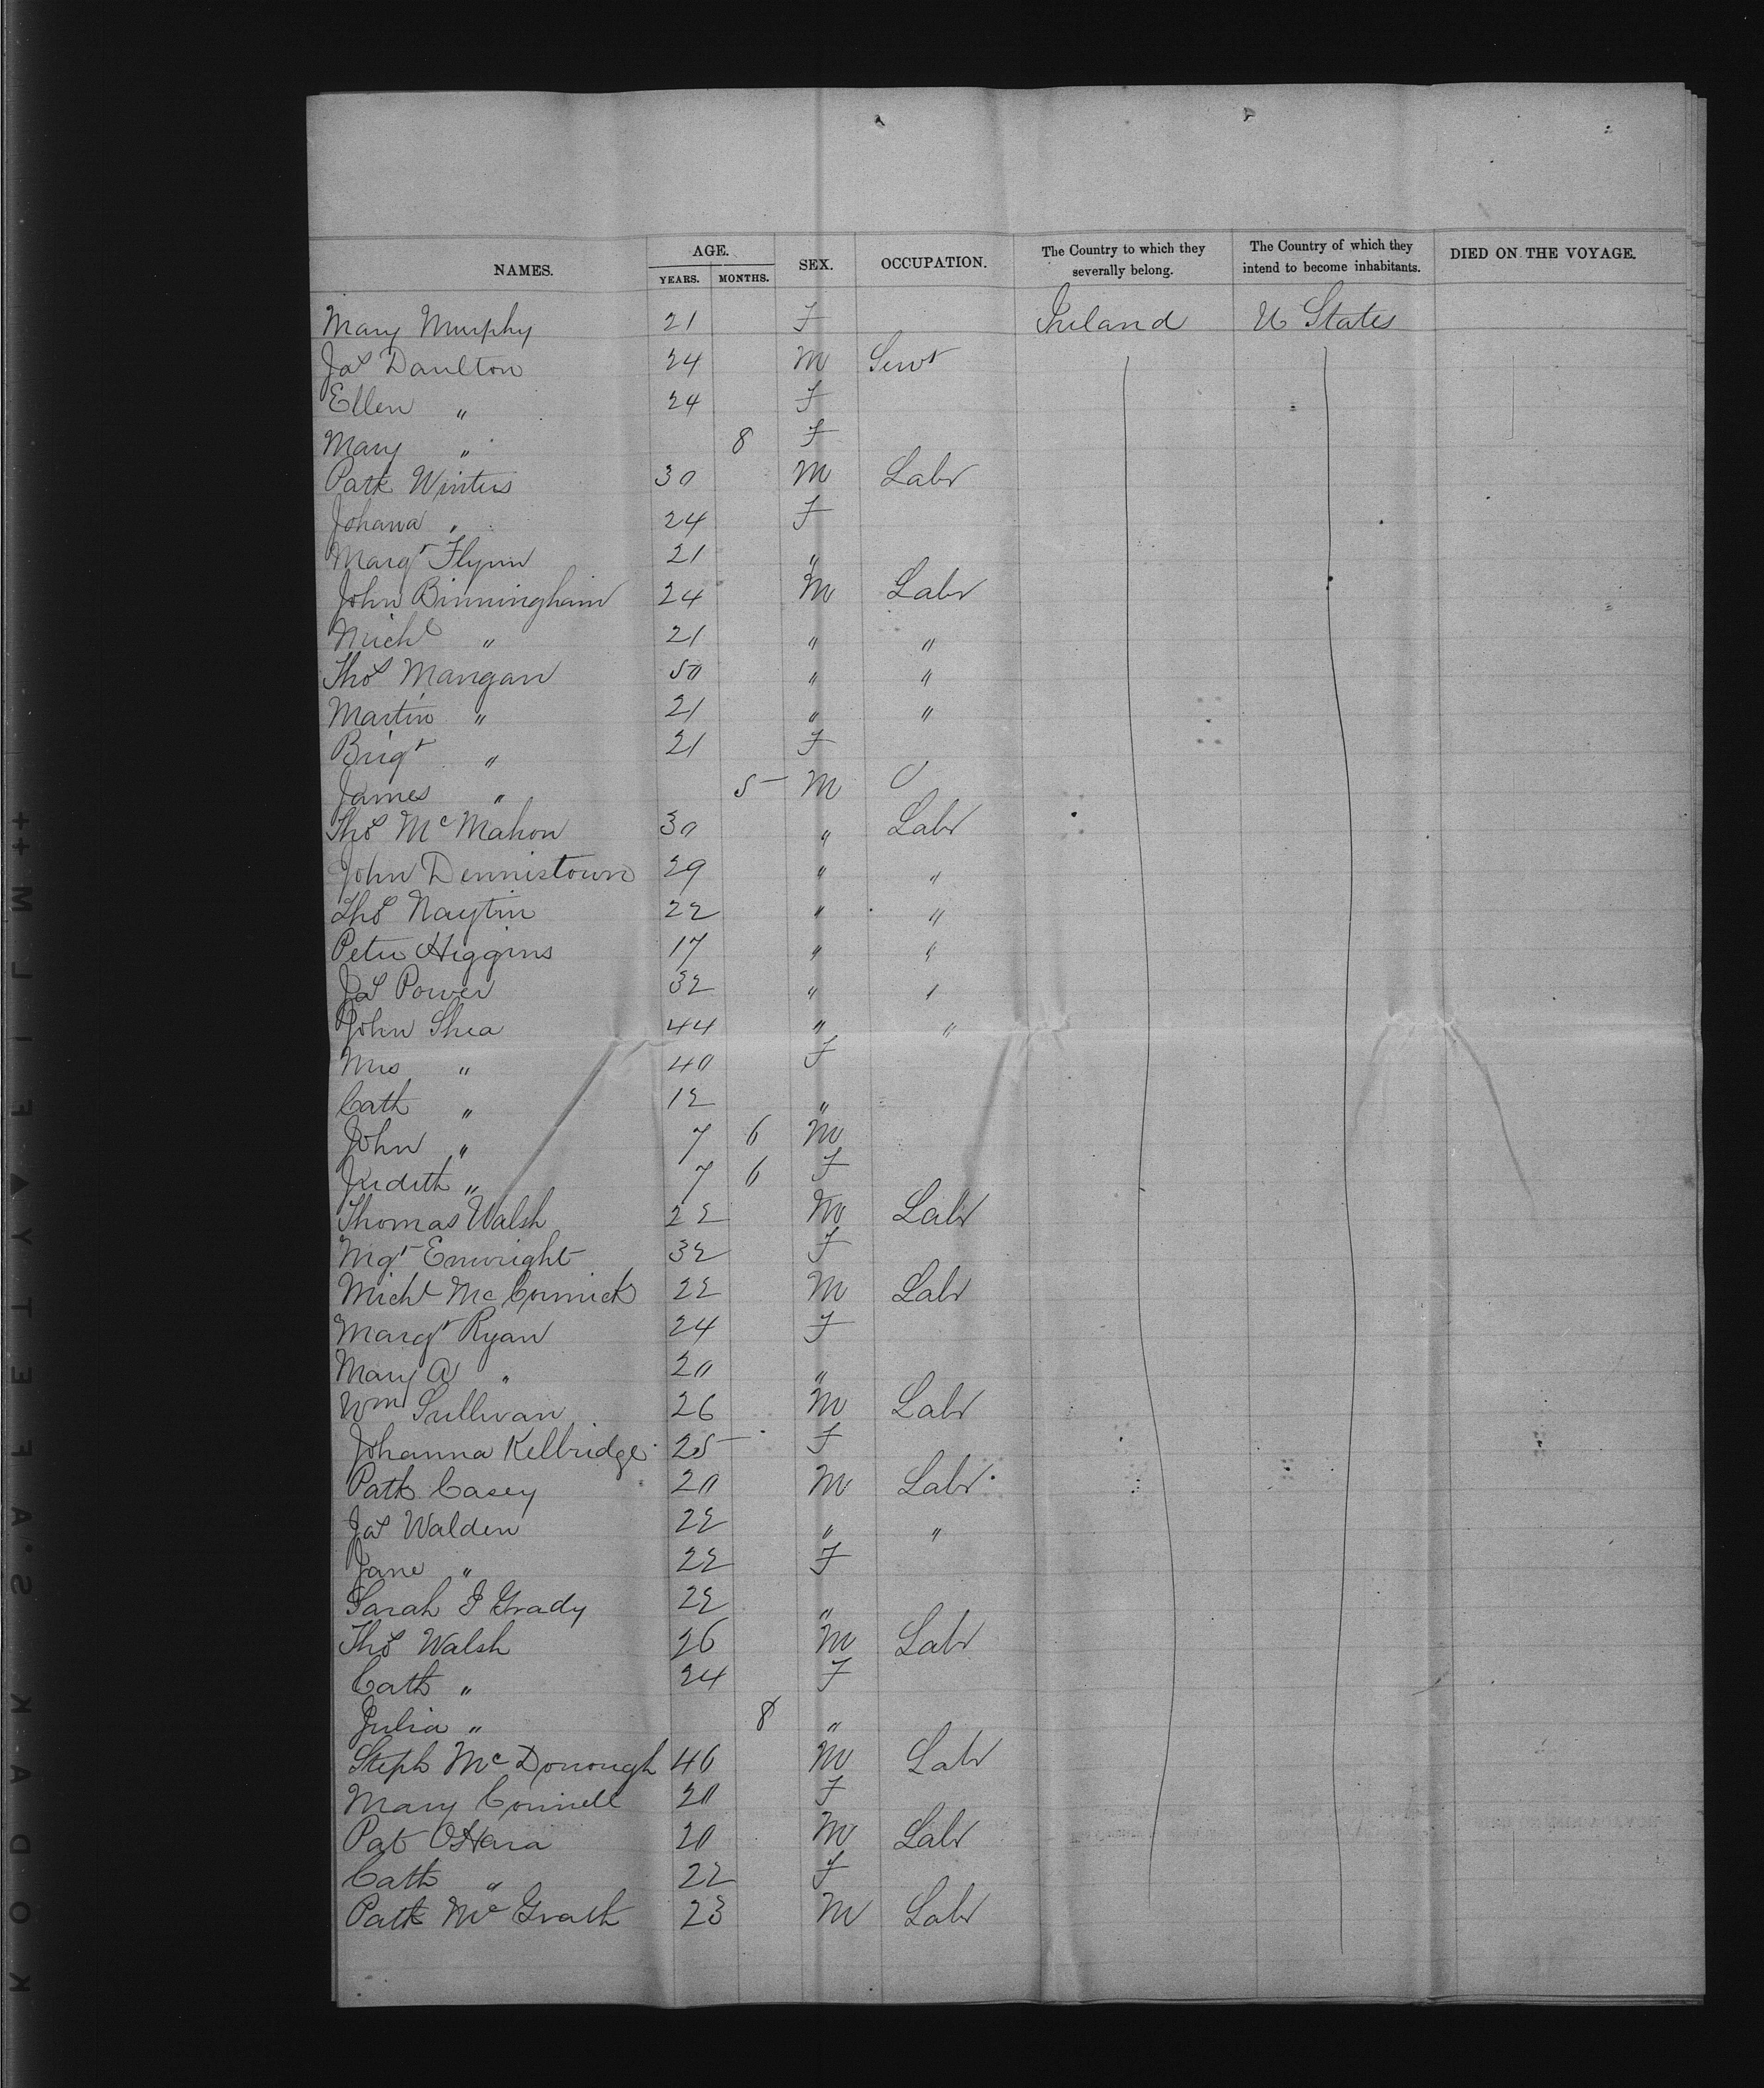 NAMES. AGE. SEX. OCCUPATION. The Country to which they severally belong. The Country of which they intend to become inhabitants. DIED ON THE VOYAGE.
YEARS. MONTHS.
Mary Murphy 21 F Ireland U States
Jas Daulton 24 M Servt
Ellen " 24 F
Mary " 8 F
Patk Winters 30 M Labr
Johana " 24 F
Margt Flynn 21 "
John Binningham 24 M Labr
Michl " 21 " "
Thos Mangan 50 " "
Martin " 21 " "
Brigt " 21 F
James " 5 M
Thos McMahon 30 " Labr
John Dennistown 29 " "
Thos Naytin 22 " "
Peter Higgins 17 " "
Jas Power 32 " "
John Shea 44 " "
Mrs " 40 F
Cath " 12 "
John " 7 6 M
Judith " 7 6 F
Thomas Walsh 22 M Labr
Mgt Enwright 32 F
Michl McCormick 22 M Labr
Margt Ryan 24 F
Mary A " 20 "
Wm Sullivan 26 M Labr
Johanna Kelbridge 25 F
Patk Casey 20 M Labr
Jas Walden 22 " "
Jane " 22 F
Sarah J Grady 22 "
Thos Walsh 26 M Labr
Cath " 24 F
Julia " 8 "
Steph McDonough 46 M Labr
Mary Connell 20 F
Pat OHara 20 M Labr
Cath " 22 F
Patk McGrath 23 M Labr
KODAK·S.AFETY▲FILM++